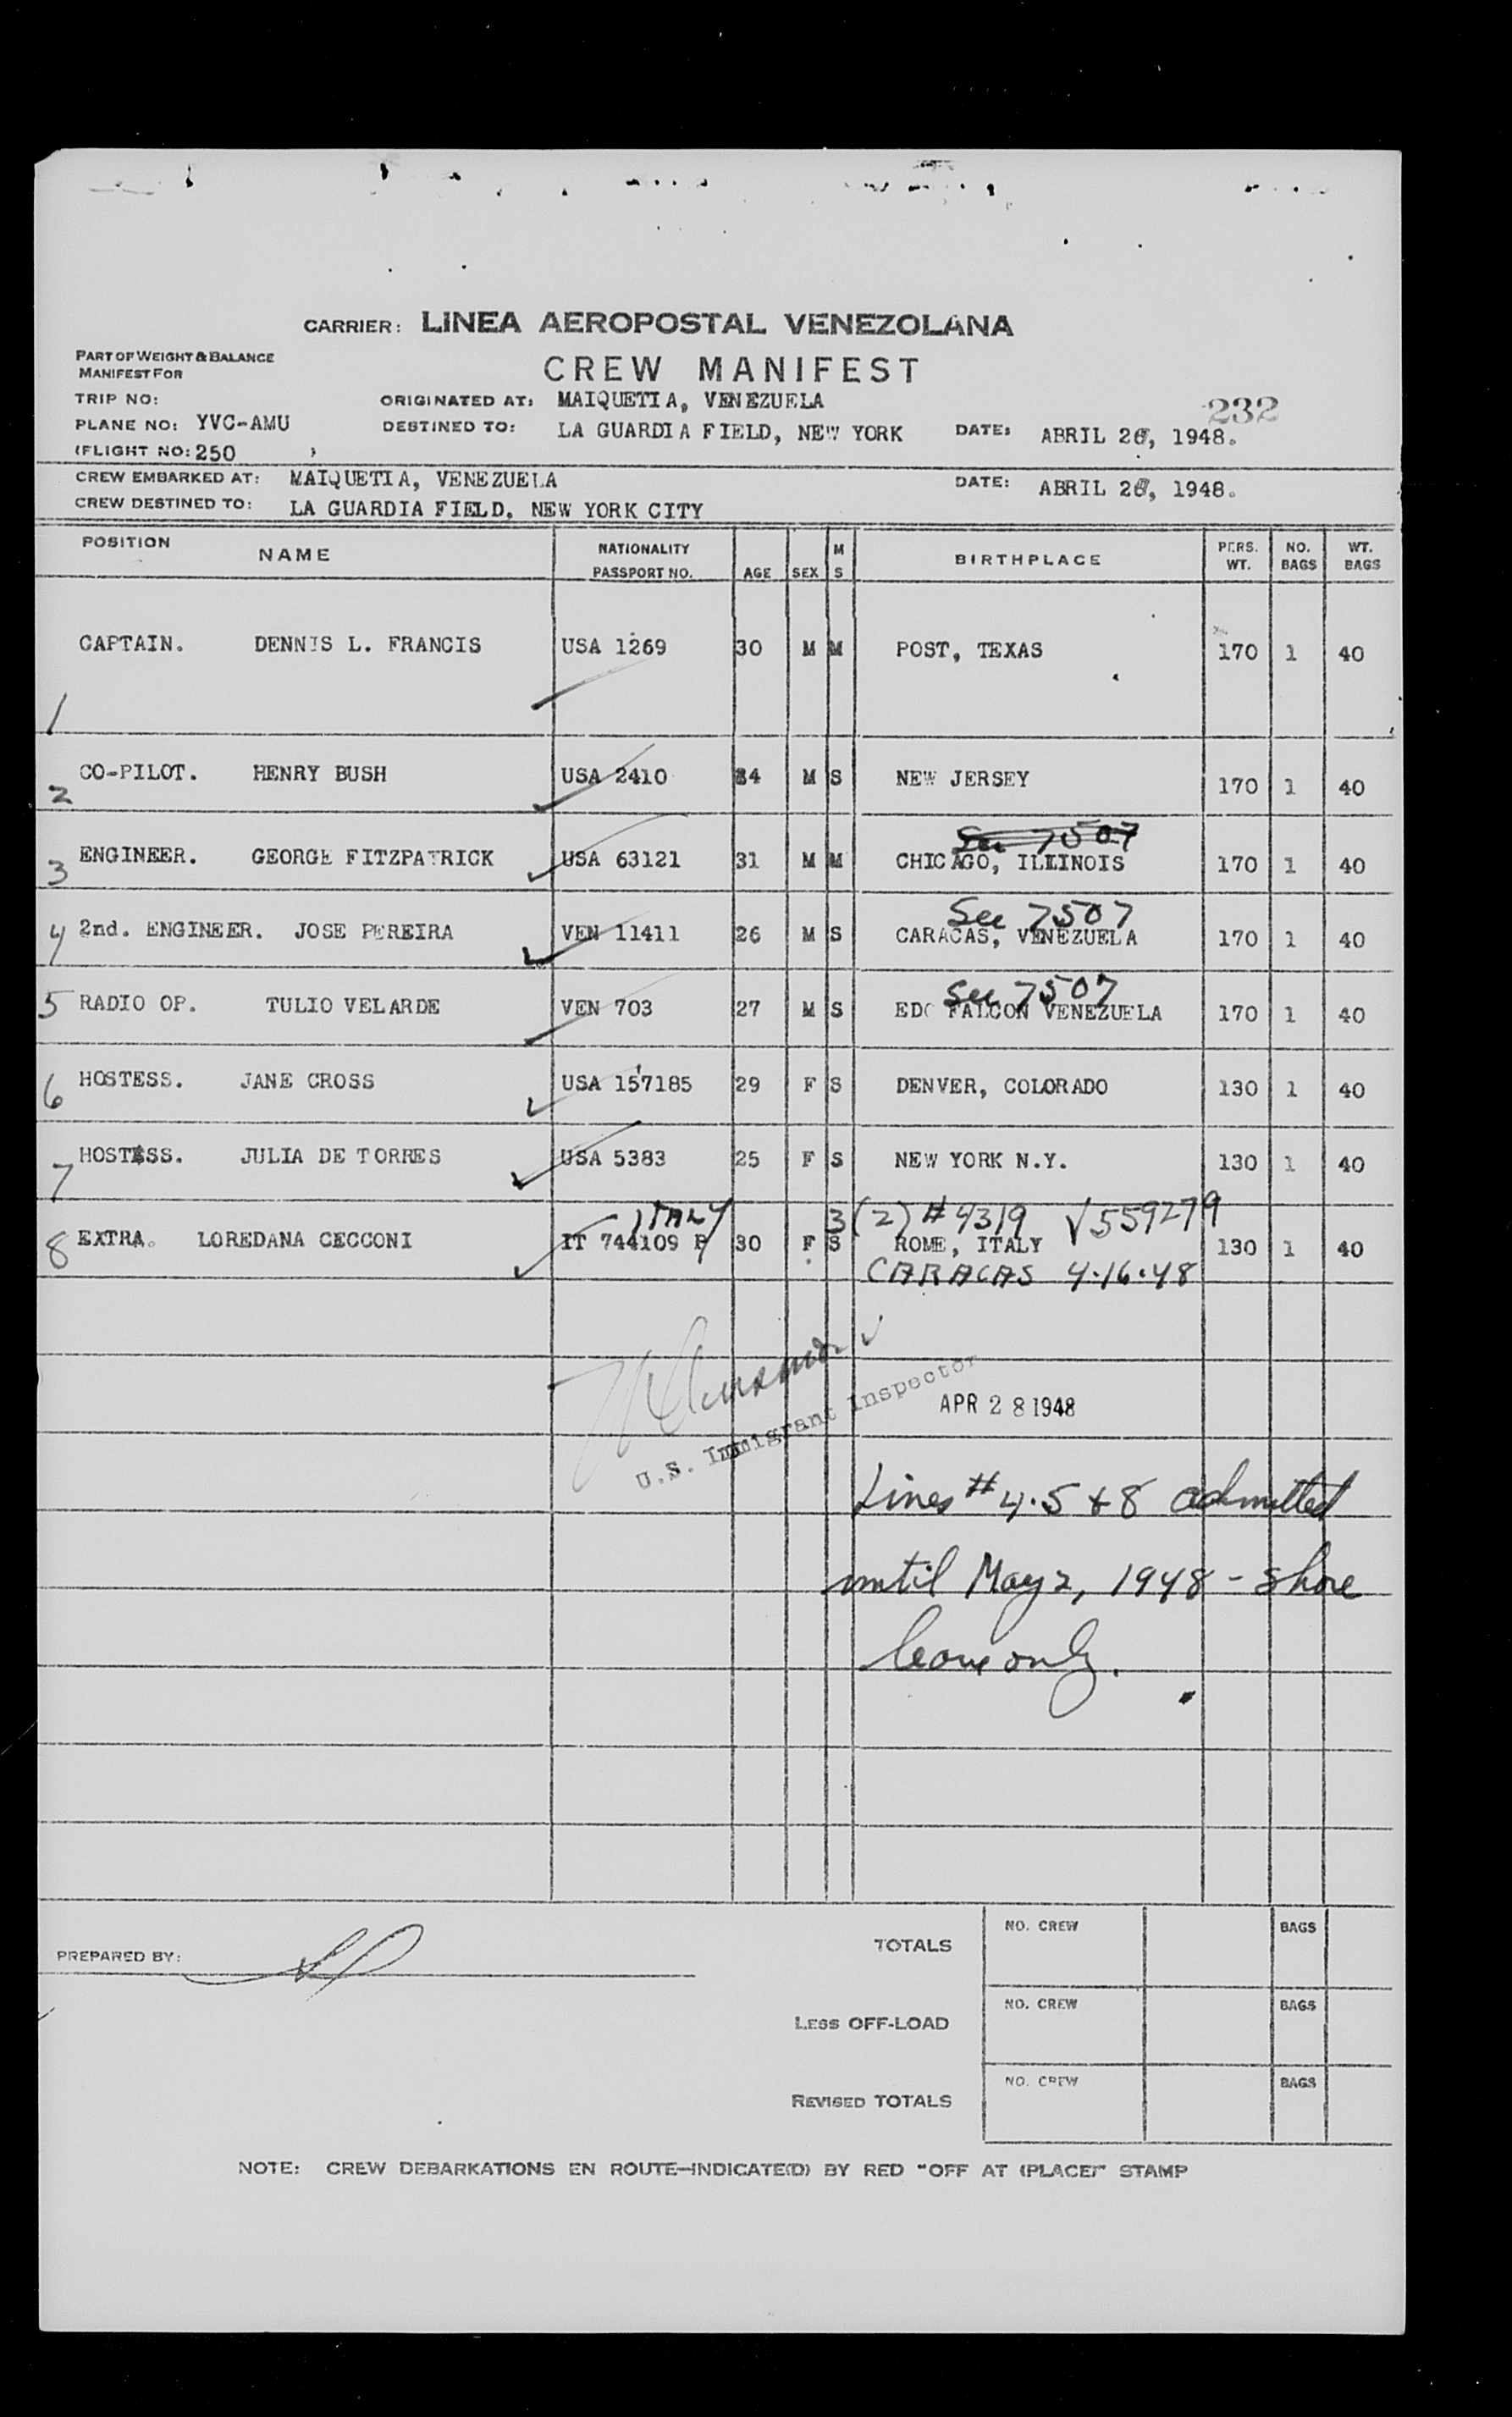 CARRIER: LINEA AEROPOSTAL VENEZOLANA
PART OF WEIGHT & BALANCE
MANIFEST FOR
CREW MANIFEST
TRIP NO:
ORIGINATED AT: MAIQUETIA, VENEZUELA
232
PLANE NO: YVC-AMU
DESTINED TO: LA GUARDIA FIELD, NEW YORK DATE: ABRIL 28, 1948.
(FLIGHT NO: 250 )
CREW EMBARKED AT: MAIQUETIA, VENEZUELA DATE: ABRIL 28, 1948.
CREW DESTINED TO: LA GUARDIA FIELD, NEW YORK CITY
POSITION NAME NATIONALITY PASSPORT NO. AGE SEX M S BIRTHPLACE PERS. WT. NO. BAGS WT. BAGS
1 CAPTAIN. DENNIS L. FRANCIS USA 1269 30 M M POST, TEXAS 170 1 40
2 CO-PILOT. HENRY BUSH USA 2410 34 M S NEW JERSEY 170 1 40
See 7507
3 ENGINEER. GEORGE FITZPATRICK USA 63121 31 M M CHICAGO, ILLINOIS 170 1 40
See 7507
4 2nd. ENGINEER. JOSE PEREIRA VEN 11411 26 M S CARACAS, VENEZUELA 170 1 40
See 7507
5 RADIO OP. TULIO VELARDE VEN 703 27 M S EDO FALCON VENEZUELA 170 1 40
6 HOSTESS. JANE CROSS USA 157185 29 F S DENVER, COLORADO 130 1 40
7 HOSTESS. JULIA DE TORRES USA 5383 25 F S NEW YORK N.Y. 130 1 40
ITALY 3(2) #4319 √559279
8 EXTRA. LOREDANA CECCONI IT 744109 P 30 F S ROME, ITALY 130 1 40
CARACAS 4·16·48
U.S. Immigrant Inspector
APR 28 1948
Lines # 4.5 & 8 admitted
until May 2, 1948 - shore
leave only.
PREPARED BY:
TOTALS NO. CREW BAGS
LESS OFF-LOAD NO. CREW BAGS
REVISED TOTALS NO. CREW BAGS
NOTE: CREW DEBARKATIONS EN ROUTE—INDICATE(D) BY RED "OFF AT (PLACE)" STAMP